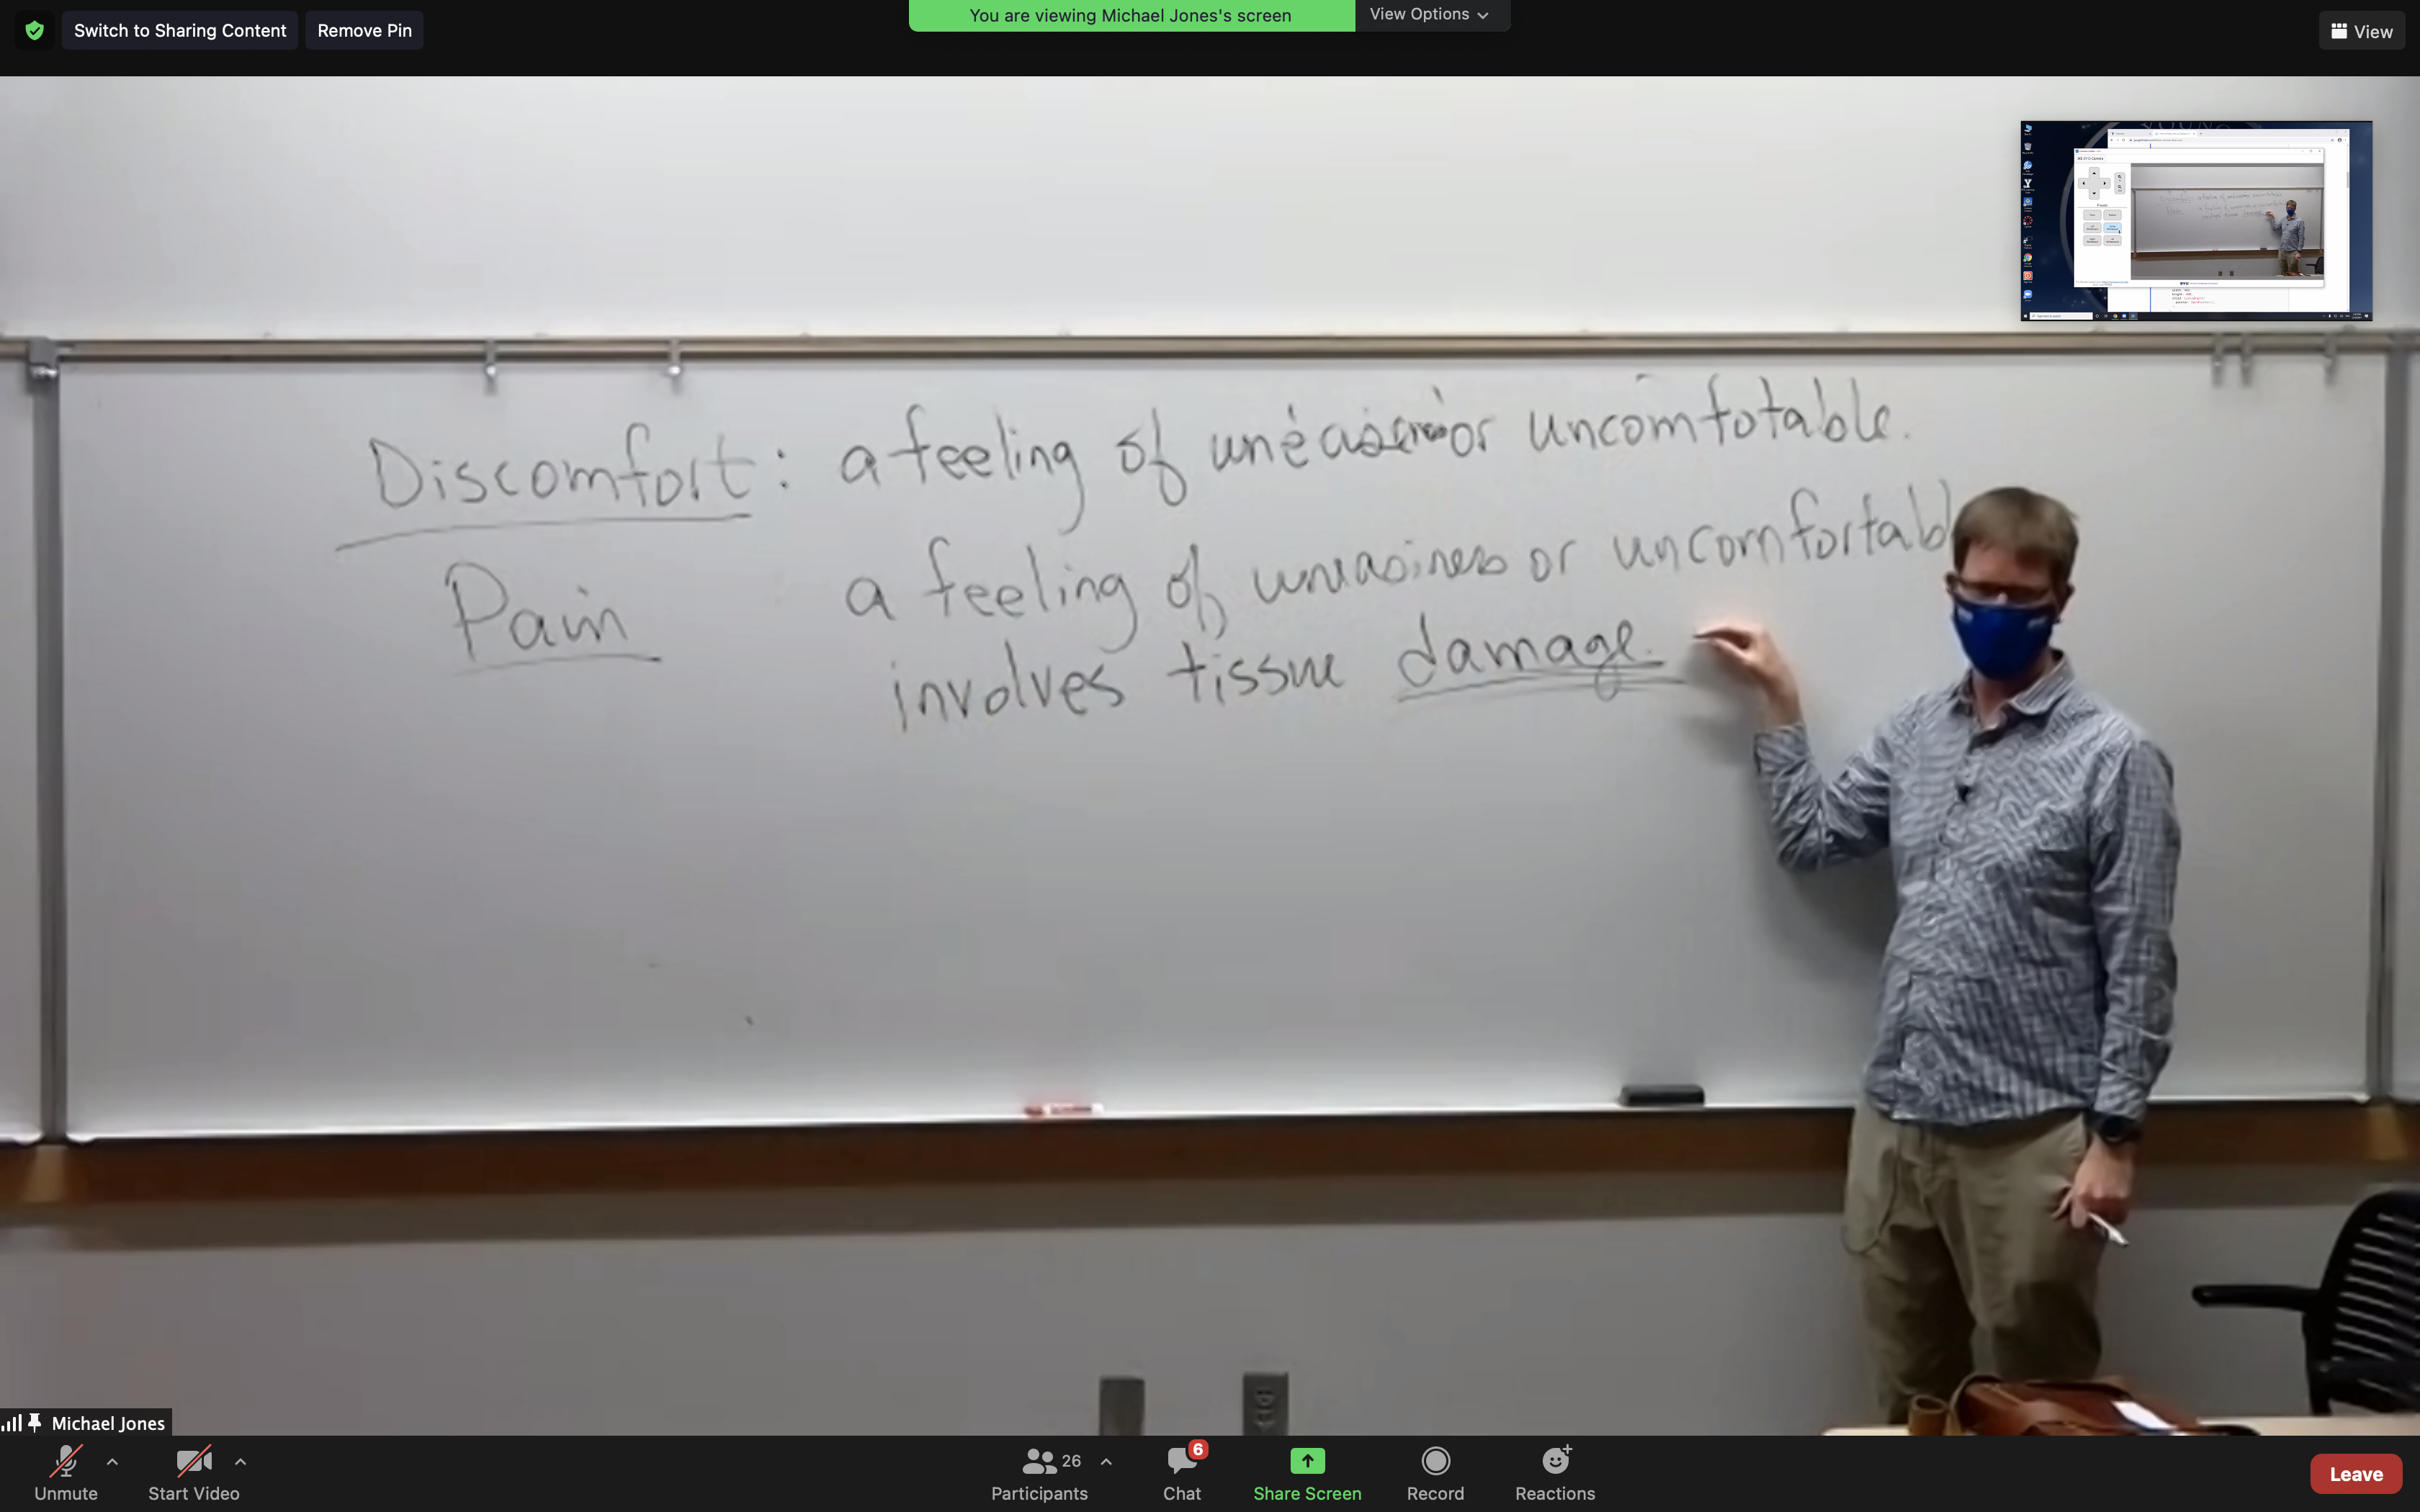 Switch to Sharing Content
Remove Pin
You are viewing Michael Jones's screen
View Options
View
Discomfort: a feeling of uneasiness or uncomfotable.
Pain a feeling of uneasiness or uncomfortabl
involves tissue damage.
Michael Jones
Unmute
Start Video
26
Participants
6
Chat
Share Screen
Record
Reactions
Leave